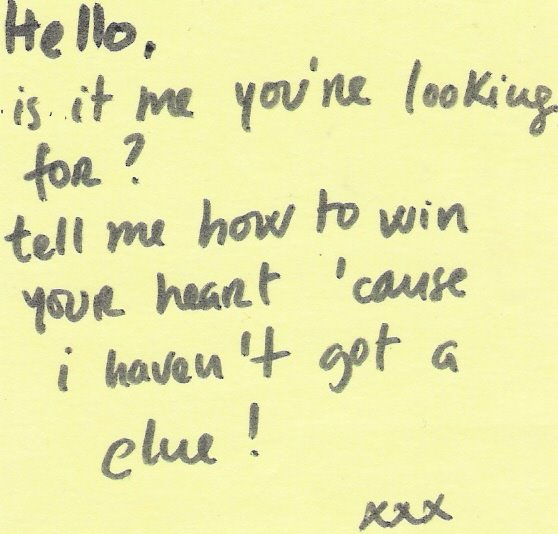 Hello.
is it me you're looking
for?
tell me how to win
your heart 'cause
i haven't got a
clue!
xxx